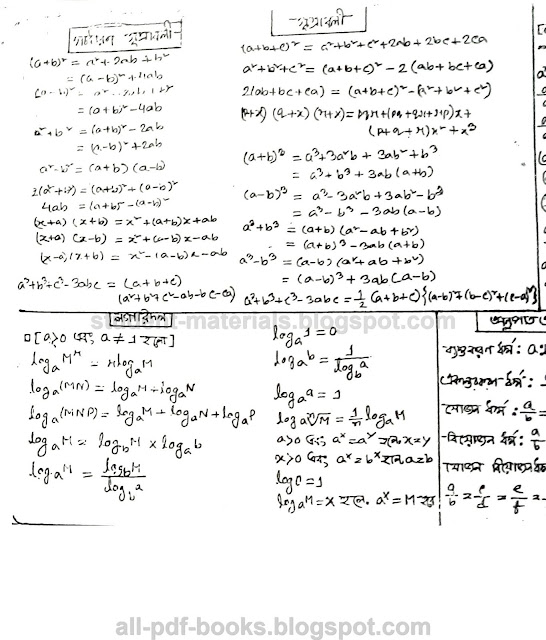 সূত্রাবলী
(a+b)² = a²+2ab+b²
= (a-b)²+4ab
= (a+b)²-4ab
a²+b² = (a+b)²-2ab
= (a-b)²+2ab
a²-b² = (a+b) (a-b)
2(a²+b²) = (a+b)²+(a-b)²
4ab = (a+b)²-(a-b)²
(x+a) (x+b) = x²+(a+b)x+ab
(x+a) (x-b) = x²+(a-b)x-ab
(x-a) (x+b) = x²-(a-b)x-ab
a³+b³+c³-3abc = (a+b+c)
(a²+b²+c²-ab-bc-ca)
সূত্রাবলী
(a+b+c)² = a²+b²+c²+2ab+2bc+2ca
a²+b²+c² = (a+b+c)²-2(ab+bc+ca)
2(ab+bc+ca) = (a+b+c)²-(a²+b²+c²)
(p+x) (q+x) (r+x) = pqr+(pq+qr+rp)x+
(p+q+r)x²+x³
(a+b)³ = a³+3a²b+3ab²+b³
= a³+b³+3ab(a+b)
(a-b)³ = a³-3a²b+3ab²-b³
= a³-b³-3ab(a-b)
a³+b³ = (a+b) (a²-ab+b²)
= (a+b)³-3ab(a+b)
a³-b³ = (a-b) (a²+ab+b²)
= (a-b)³+3ab(a-b)
a³+b³+c³-3abc = ½ (a+b+c) {(a-b)²+(b-c)²+(c-a)²}
student-materials.blogspot.com
লগারিদম
[a>0 এবং a≠1 হলে]
logₐMʳ = r logₐM
logₐ(MN) = logₐM+logₐN
logₐ(MNP) = logₐM+logₐN+logₐP
logₐM = log_bM × logₐb
logₐM = log_bM / log_ba
logₐ1 = 0
logₐb = 1/log_ba
logₐa = 1
logₐⁿ√M = 1/n logₐM
a>0 এবং aˣ=aʸ হলে x=y
x>0 এবং aˣ=bˣ হলে a=b
logₐM=x হলে aˣ=M হয়
অনুপাত
ধর্ম: a
ধর্ম:
যোজন ধর্ম: a/b =
বিয়োজন ধর্ম: a/b
যোজন বিয়োজন ধর্ম
a/b = c/d = e/f =
all-pdf-books.blogspot.com